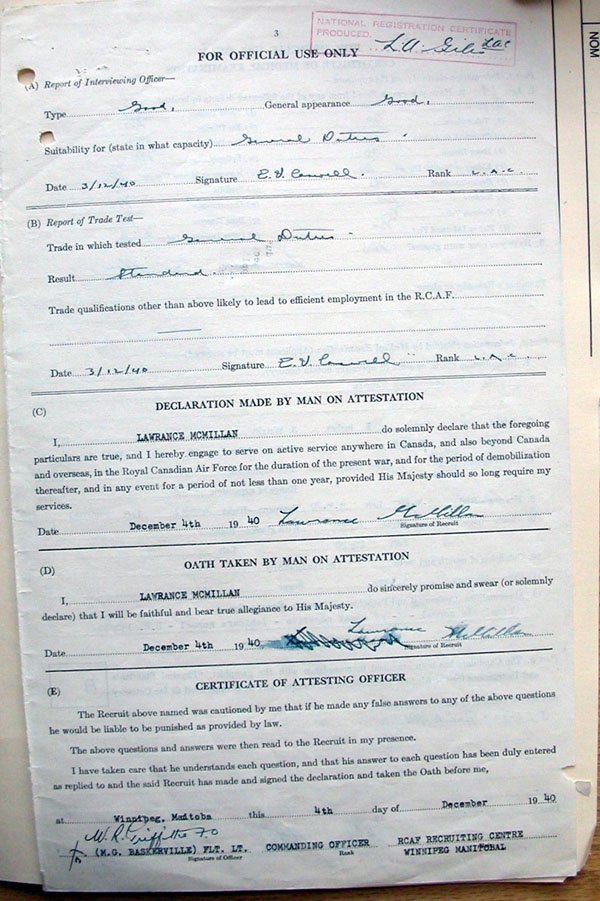 NATIONAL REGISTRATION CERTIFICATE
PRODUCED.
3
FOR OFFICIAL USE ONLY
NOM
(A) Report of Interviewing Officer—
Type Good, General appearance Good,
Suitability for (state in what capacity) General Duties
Date 3/12/40 Signature Rank L.A.C.
(B) Report of Trade Test—
Trade in which tested General Duties
Result Standard.
Trade qualifications other than above likely to lead to efficient employment in the R.C.A.F.
Date 3/12/40 Signature Rank L.A.C.
(C) DECLARATION MADE BY MAN ON ATTESTATION
I, LAWRANCE MCMILLAN do solemnly declare that the foregoing
particulars are true, and I hereby engage to serve on active service anywhere in Canada, and also beyond Canada
and overseas, in the Royal Canadian Air Force for the duration of the present war, and for the period of demobilization
thereafter, and in any event for a period of not less than one year, provided His Majesty should so long require my
services.
Date December 4th 19 40 Lawrance McMillan
Signature of Recruit
(D) OATH TAKEN BY MAN ON ATTESTATION
I, LAWRANCE MCMILLAN do sincerely promise and swear (or solemnly
declare) that I will be faithful and bear true allegiance to His Majesty.
Date December 4th 19 40 Lawrance McMillan
Signature of Recruit
(E) CERTIFICATE OF ATTESTING OFFICER
The Recruit above named was cautioned by me that if he made any false answers to any of the above questions
he would be liable to be punished as provided by law.
The above questions and answers were then read to the Recruit in my presence.
I have taken care that he understands each question, and that his answer to each question has been duly entered
as replied to and the said Recruit has made and signed the declaration and taken the Oath before me,
at Winnipeg, Manitoba this 4th day of December 19 40
W.R. Griffiths FO
(M.G. BASKERVILLE) FLT. LT. COMMANDING OFFICER RCAF RECRUITING CENTRE
Signature of Officer Rank WINNIPEG MANITOBA